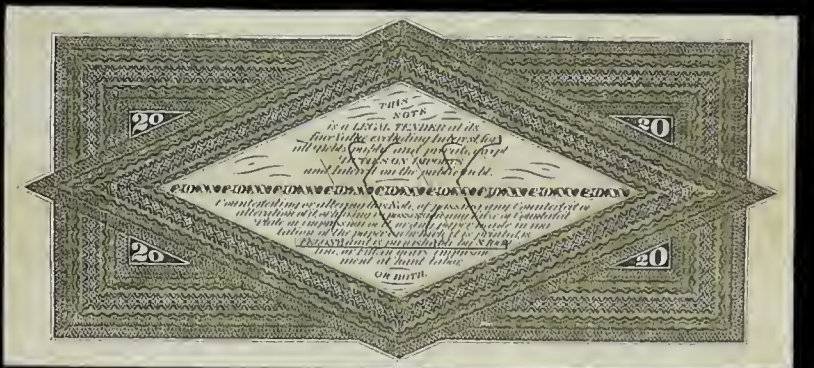 THIS
NOTE
is a LEGAL TENDER at its
face value excluding Interest, for
all debts public and private, except
DUTIES ON IMPORTS
and Interest on the public debt.
20
20
Counterfeiting or altering this Note, or passing any Counterfeit or
alteration of it, or having in possession any false or Counterfeit
Plate or impression of it, or any paper made in imi
tation of the paper on which it is printed is
FELONY and is punishable by $
fine, or Fifteen years imprison
ment at hard labor,
OR BOTH.
20
20